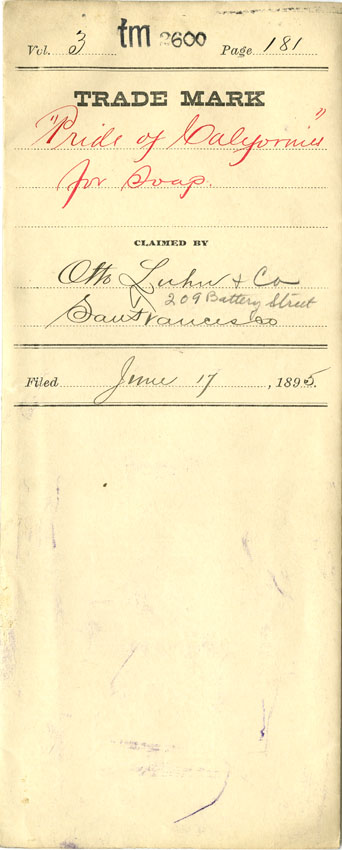 Vol. 3 tm 2600 Page 181
TRADE MARK
"Pride of California"
for Soap.
CLAIMED BY
Otto Luhn & Co
209 Battery Street
San Francisco
Filed June 17, 1895.